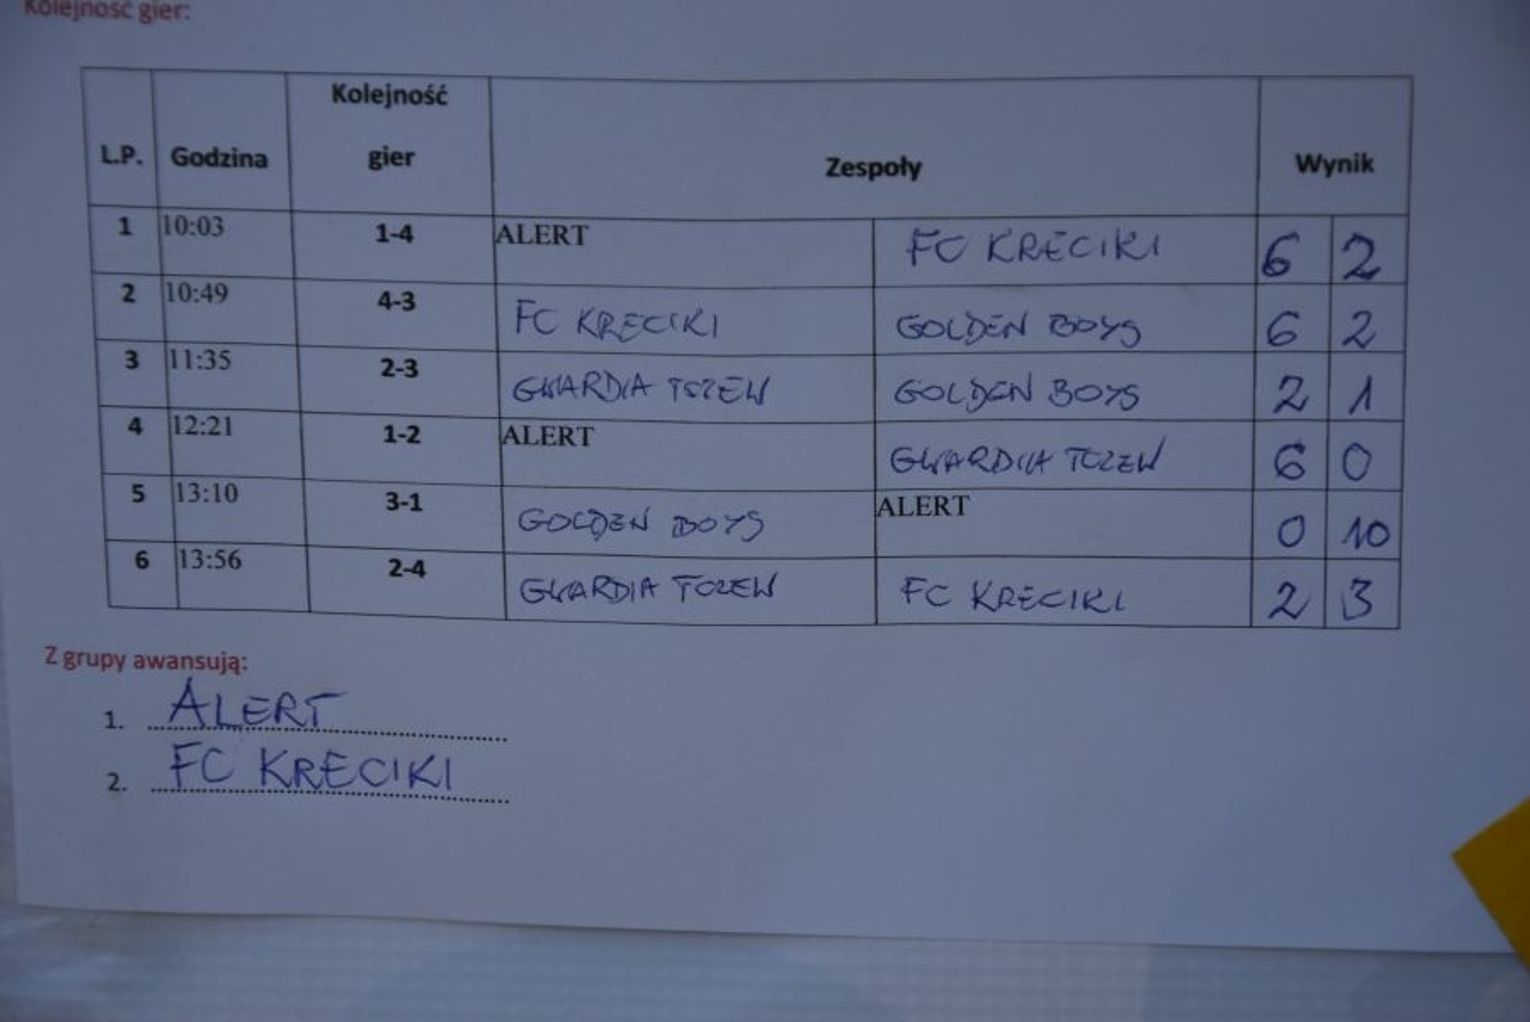 Kolejność gier:
L.P. Godzina Kolejność gier Zespoły Wynik
1 10:03 1-4 ALERT FC KRECIKI 6 2
2 10:49 4-3 FC KRECIKI GOLDEN BOYS 6 2
3 11:35 2-3 GWARDIA TCZEW GOLDEN BOYS 2 1
4 12:21 1-2 ALERT GWARDIA TCZEW 6 0
5 13:10 3-1 GOLDEN BOYS ALERT 0 10
6 13:56 2-4 GWARDIA TCZEW FC KRECIKI 2 3
Z grupy awansują:
1. ALERT
2. FC KRECIKI